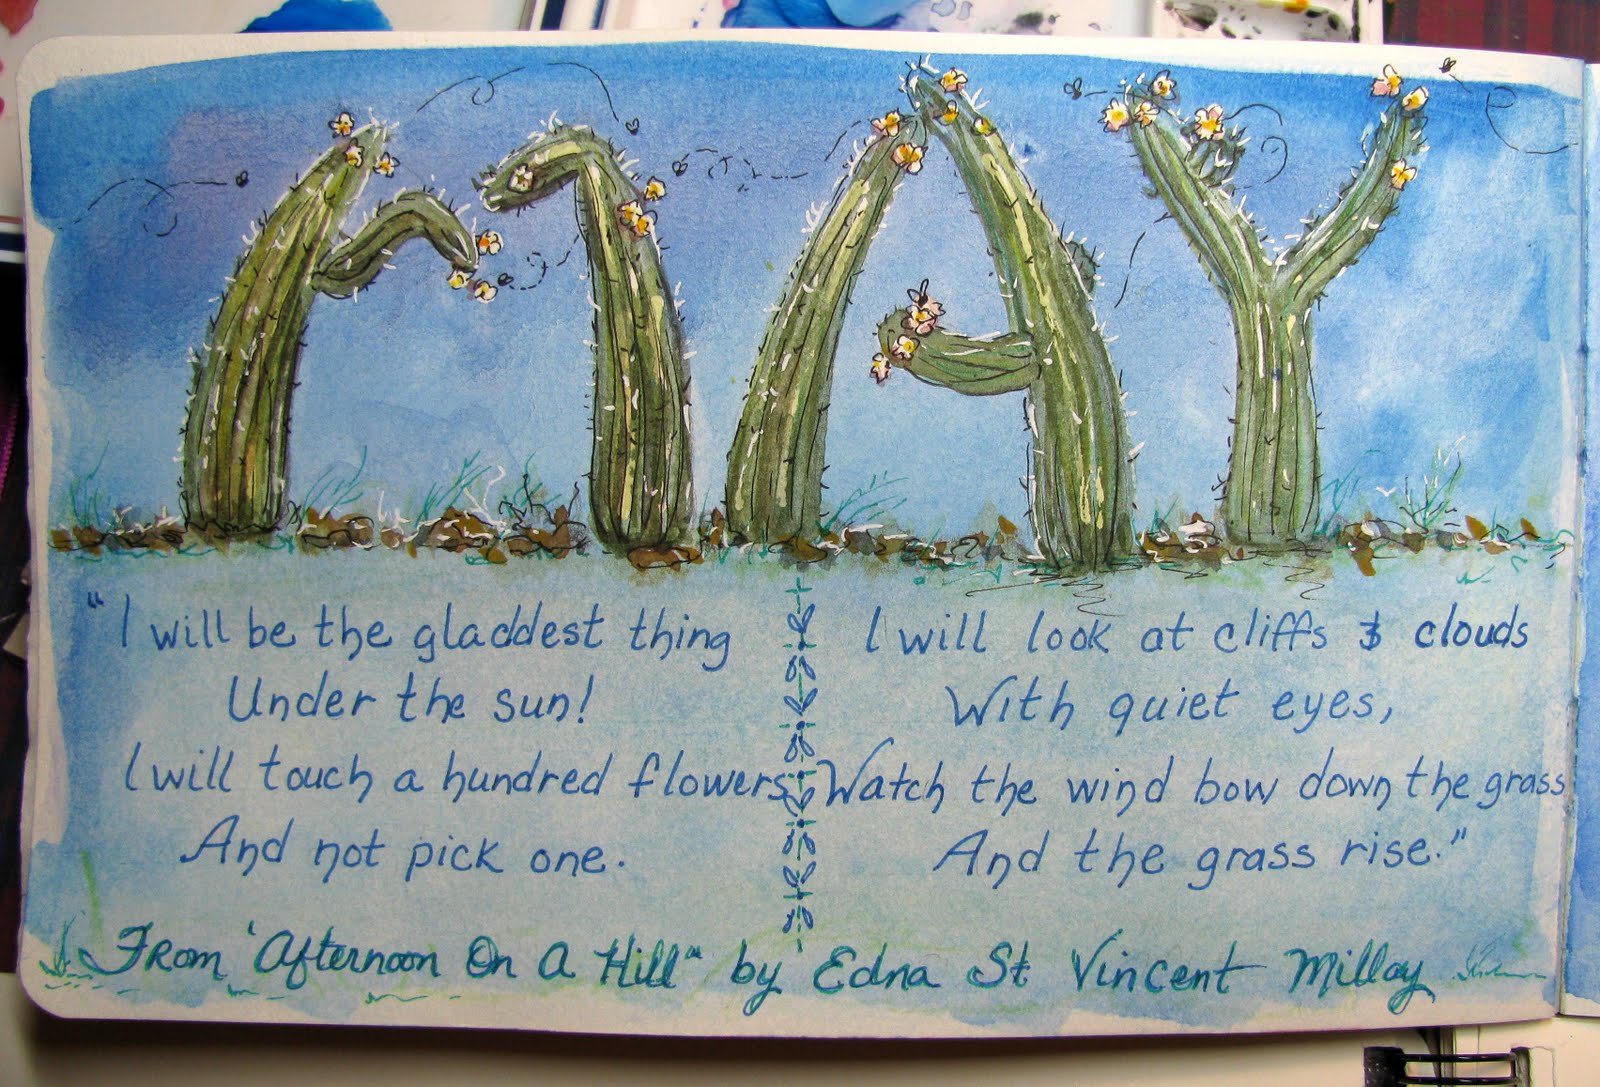 MAY
"I will be the gladdest thing
Under the sun!
I will touch a hundred flowers
And not pick one.
I will look at cliffs & clouds
With quiet eyes,
Watch the wind bow down the grass
And the grass rise."
From 'Afternoon On A Hill" by Edna St Vincent Millay